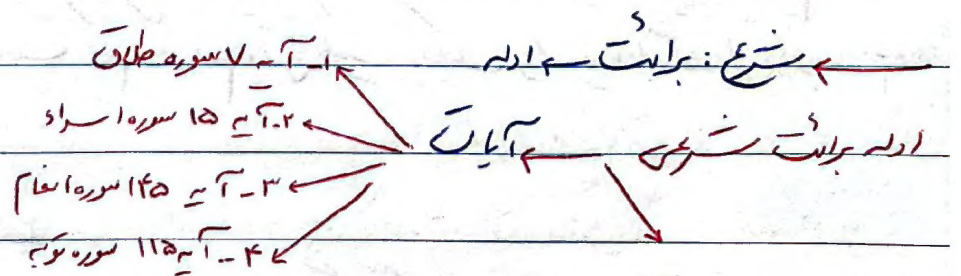 شرع : برائت ← ادله
ادله برائت شرعی ← آیات
۱- آیه ۷ سوره طلاق
۲- آیه ۱۵ سوره اسراء
۳- آیه ۱۴۵ سوره انعام
۴- آیه ۱۱۵ سوره توبه